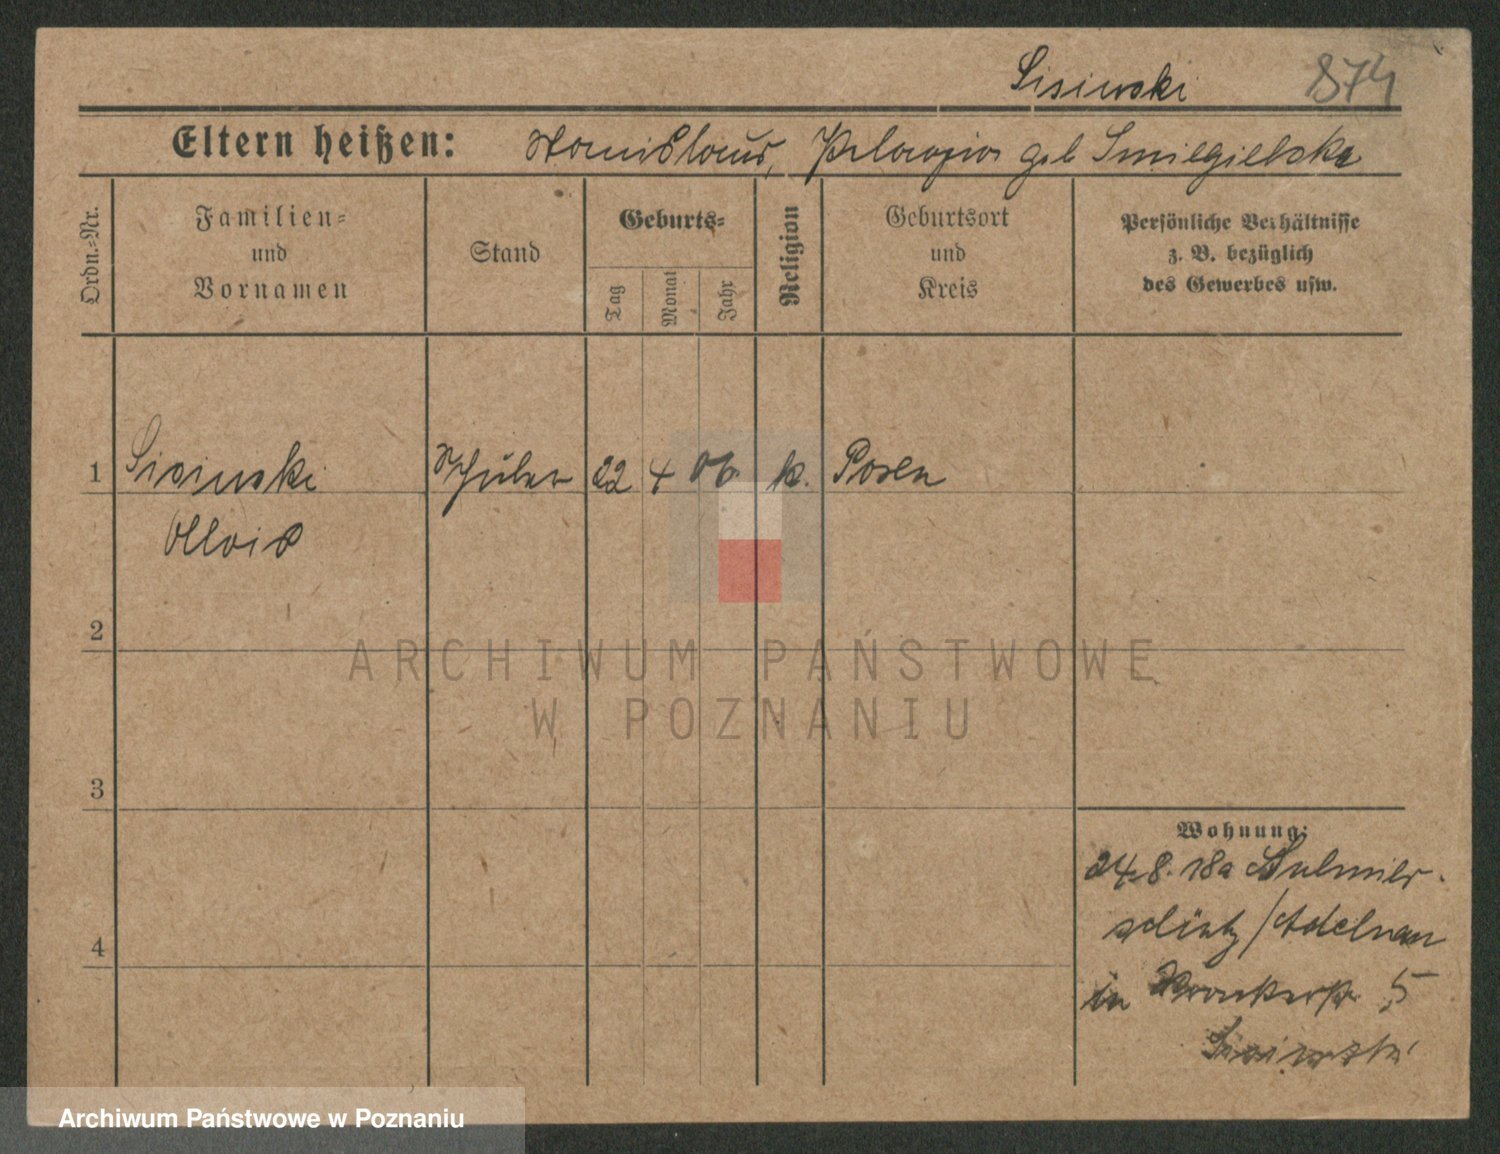 Sisinski 874
Eltern heißen: Stanislaus, Pelagia geb Smiegielska
Ordn.=Nr.
Familien=
und
Vornamen
Stand
Geburts=
Tag
Monat
Jahr
Religion
Geburtsort
und
Kreis
Persönliche Verhältnisse
z. B. bezüglich
des Gewerbes usw.
1 Sisinski Schüler 22 4 06 k. Posen
Alois
2
3
4
Wohnung:
24.8.18a Sulmier-
schütz/Adelnau
in 5
Sisinski
ARCHIWUM PAŃSTWOWE
W POZNANIU
Archiwum Państwowe w Poznaniu